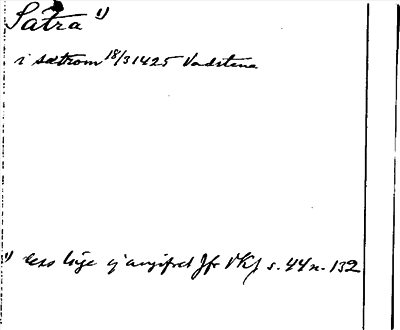 Sätra 1)
i sætrom 18/3 1425 Vadstena
1) dess läge ej angifvet Jfr VKJ s. 44 n. 132